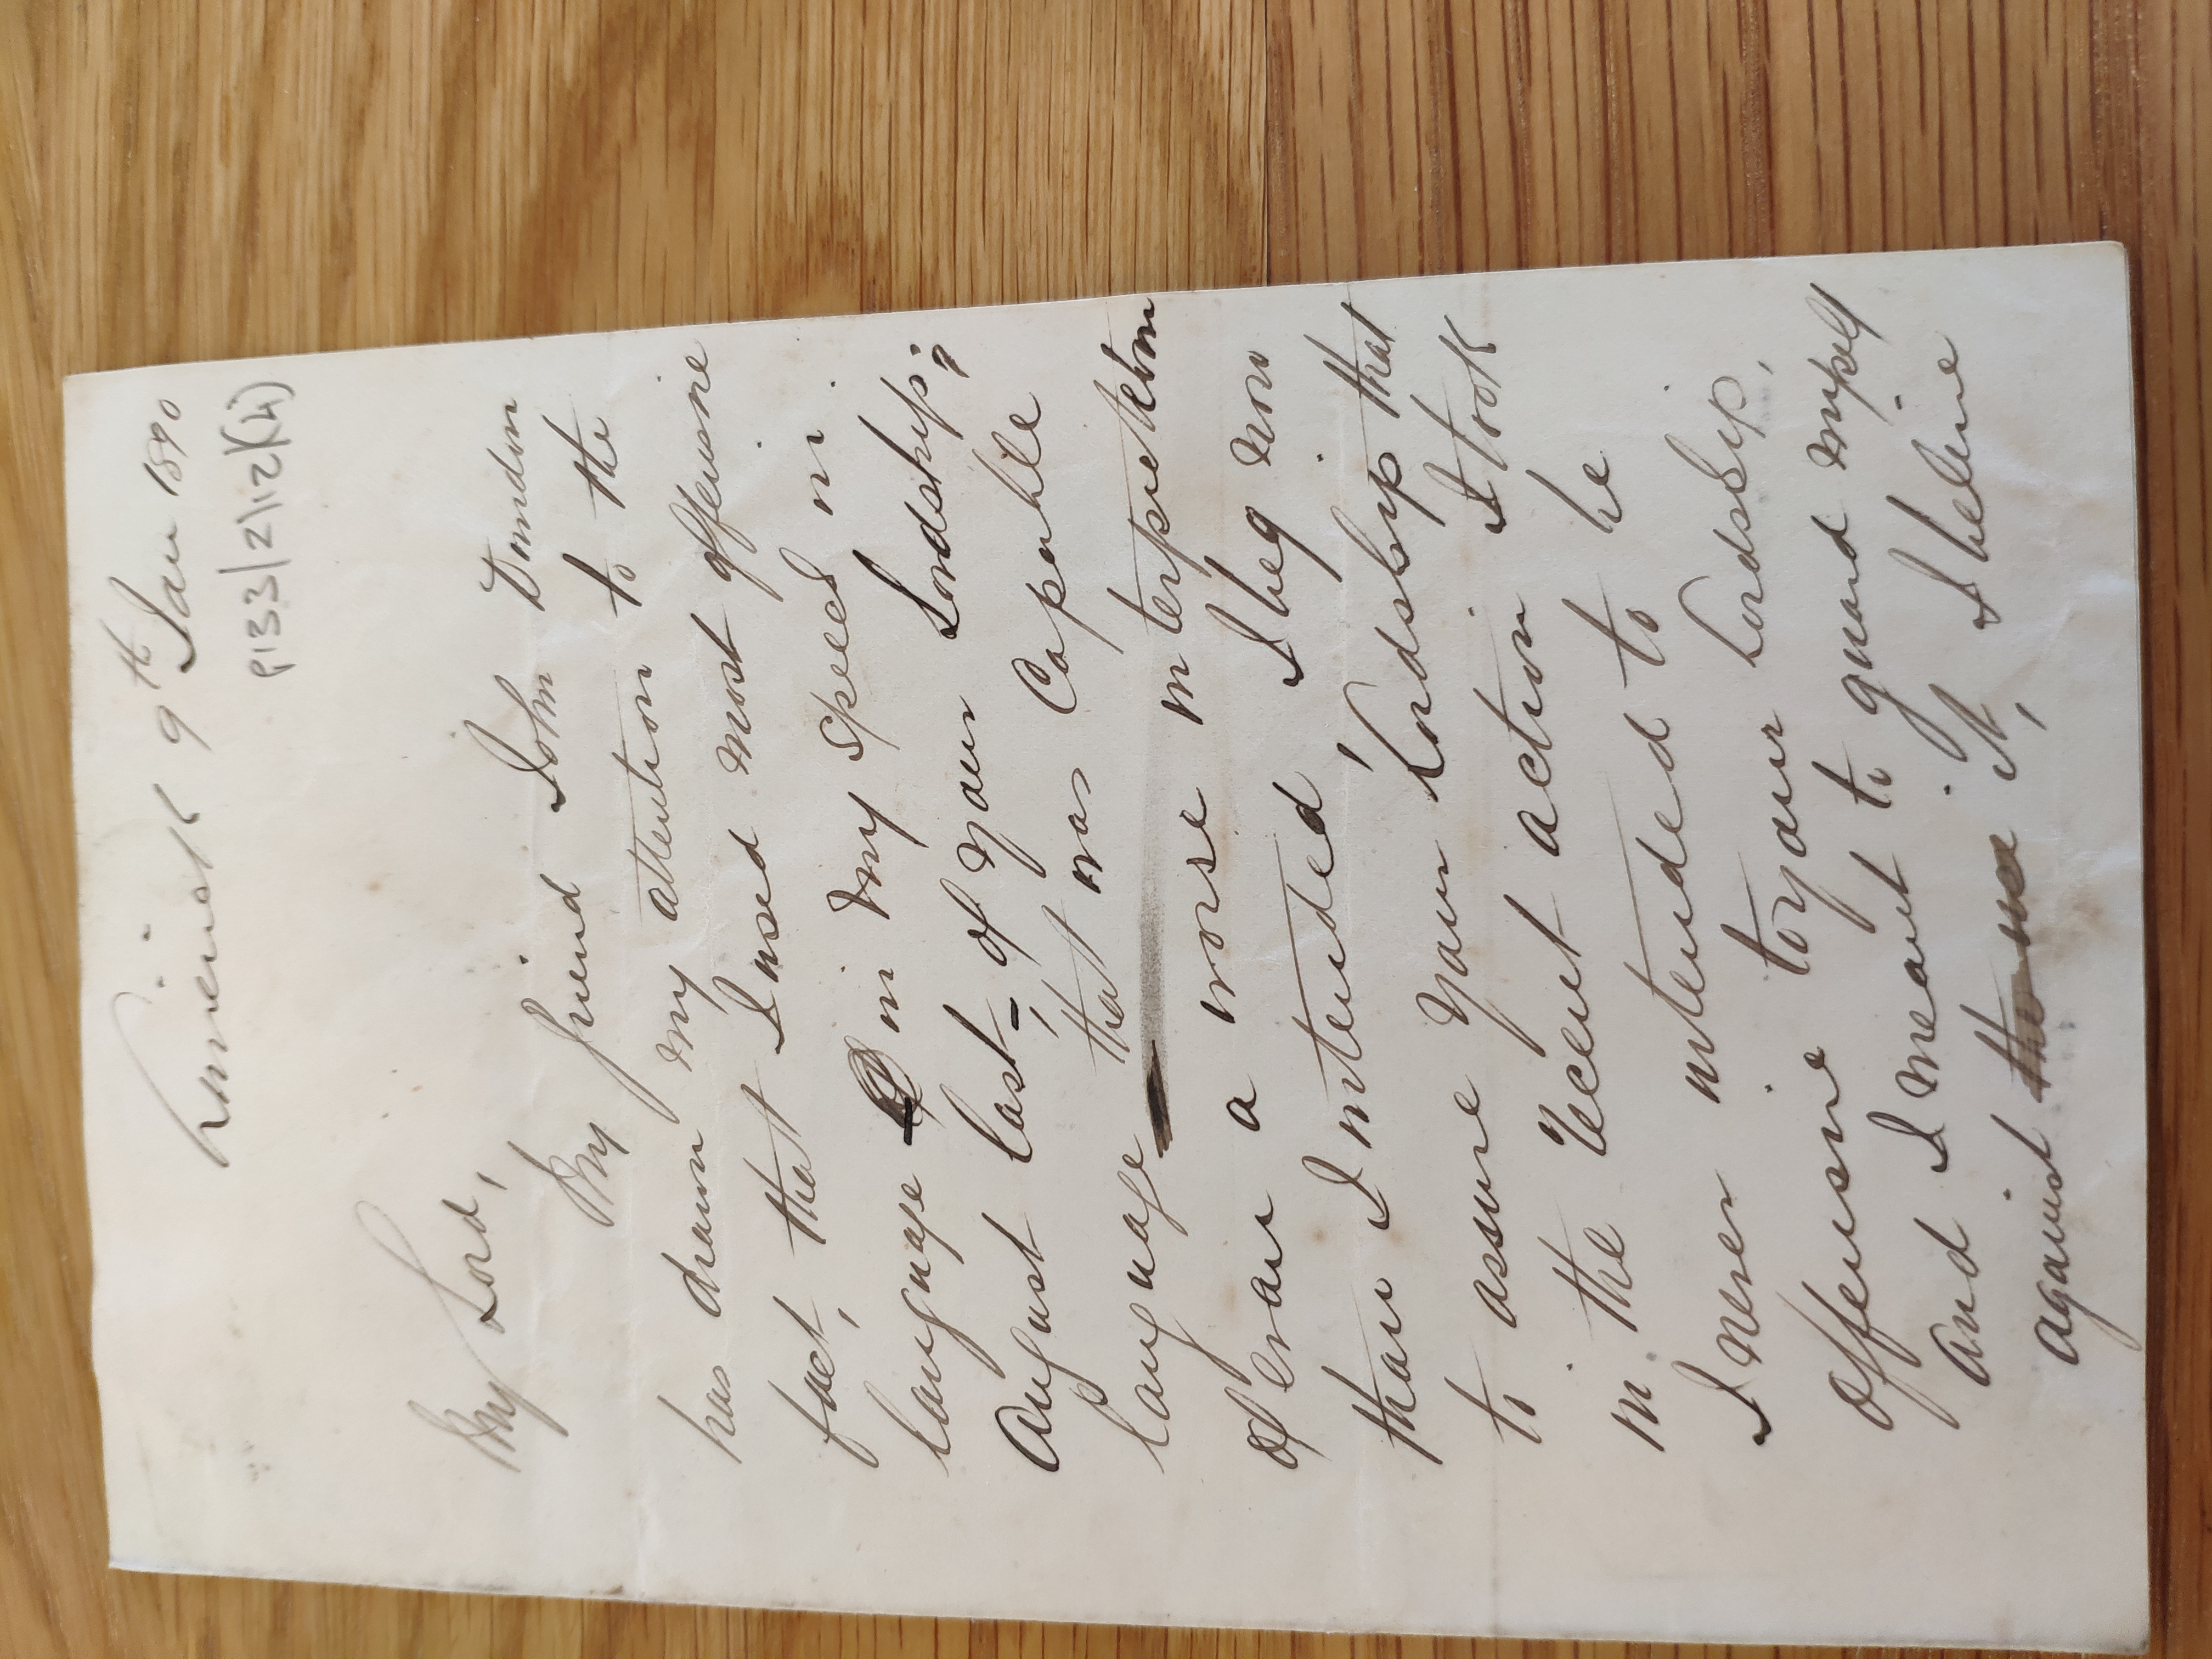 Limerick 9th Jan 1890
P133/2/12(4)
My Lord,
My friend John Dundon
has drawn my attention to the
fact, that I used most offensive
language in my speech in
August last, of your Lordship;
language that was capable
of even a worse interpretation
than I intended, I beg now
to assure your Lordship that
in the recent action I took
I never intended to be
offensive to your Lordship,
and I meant to guard myself
against it, I believe